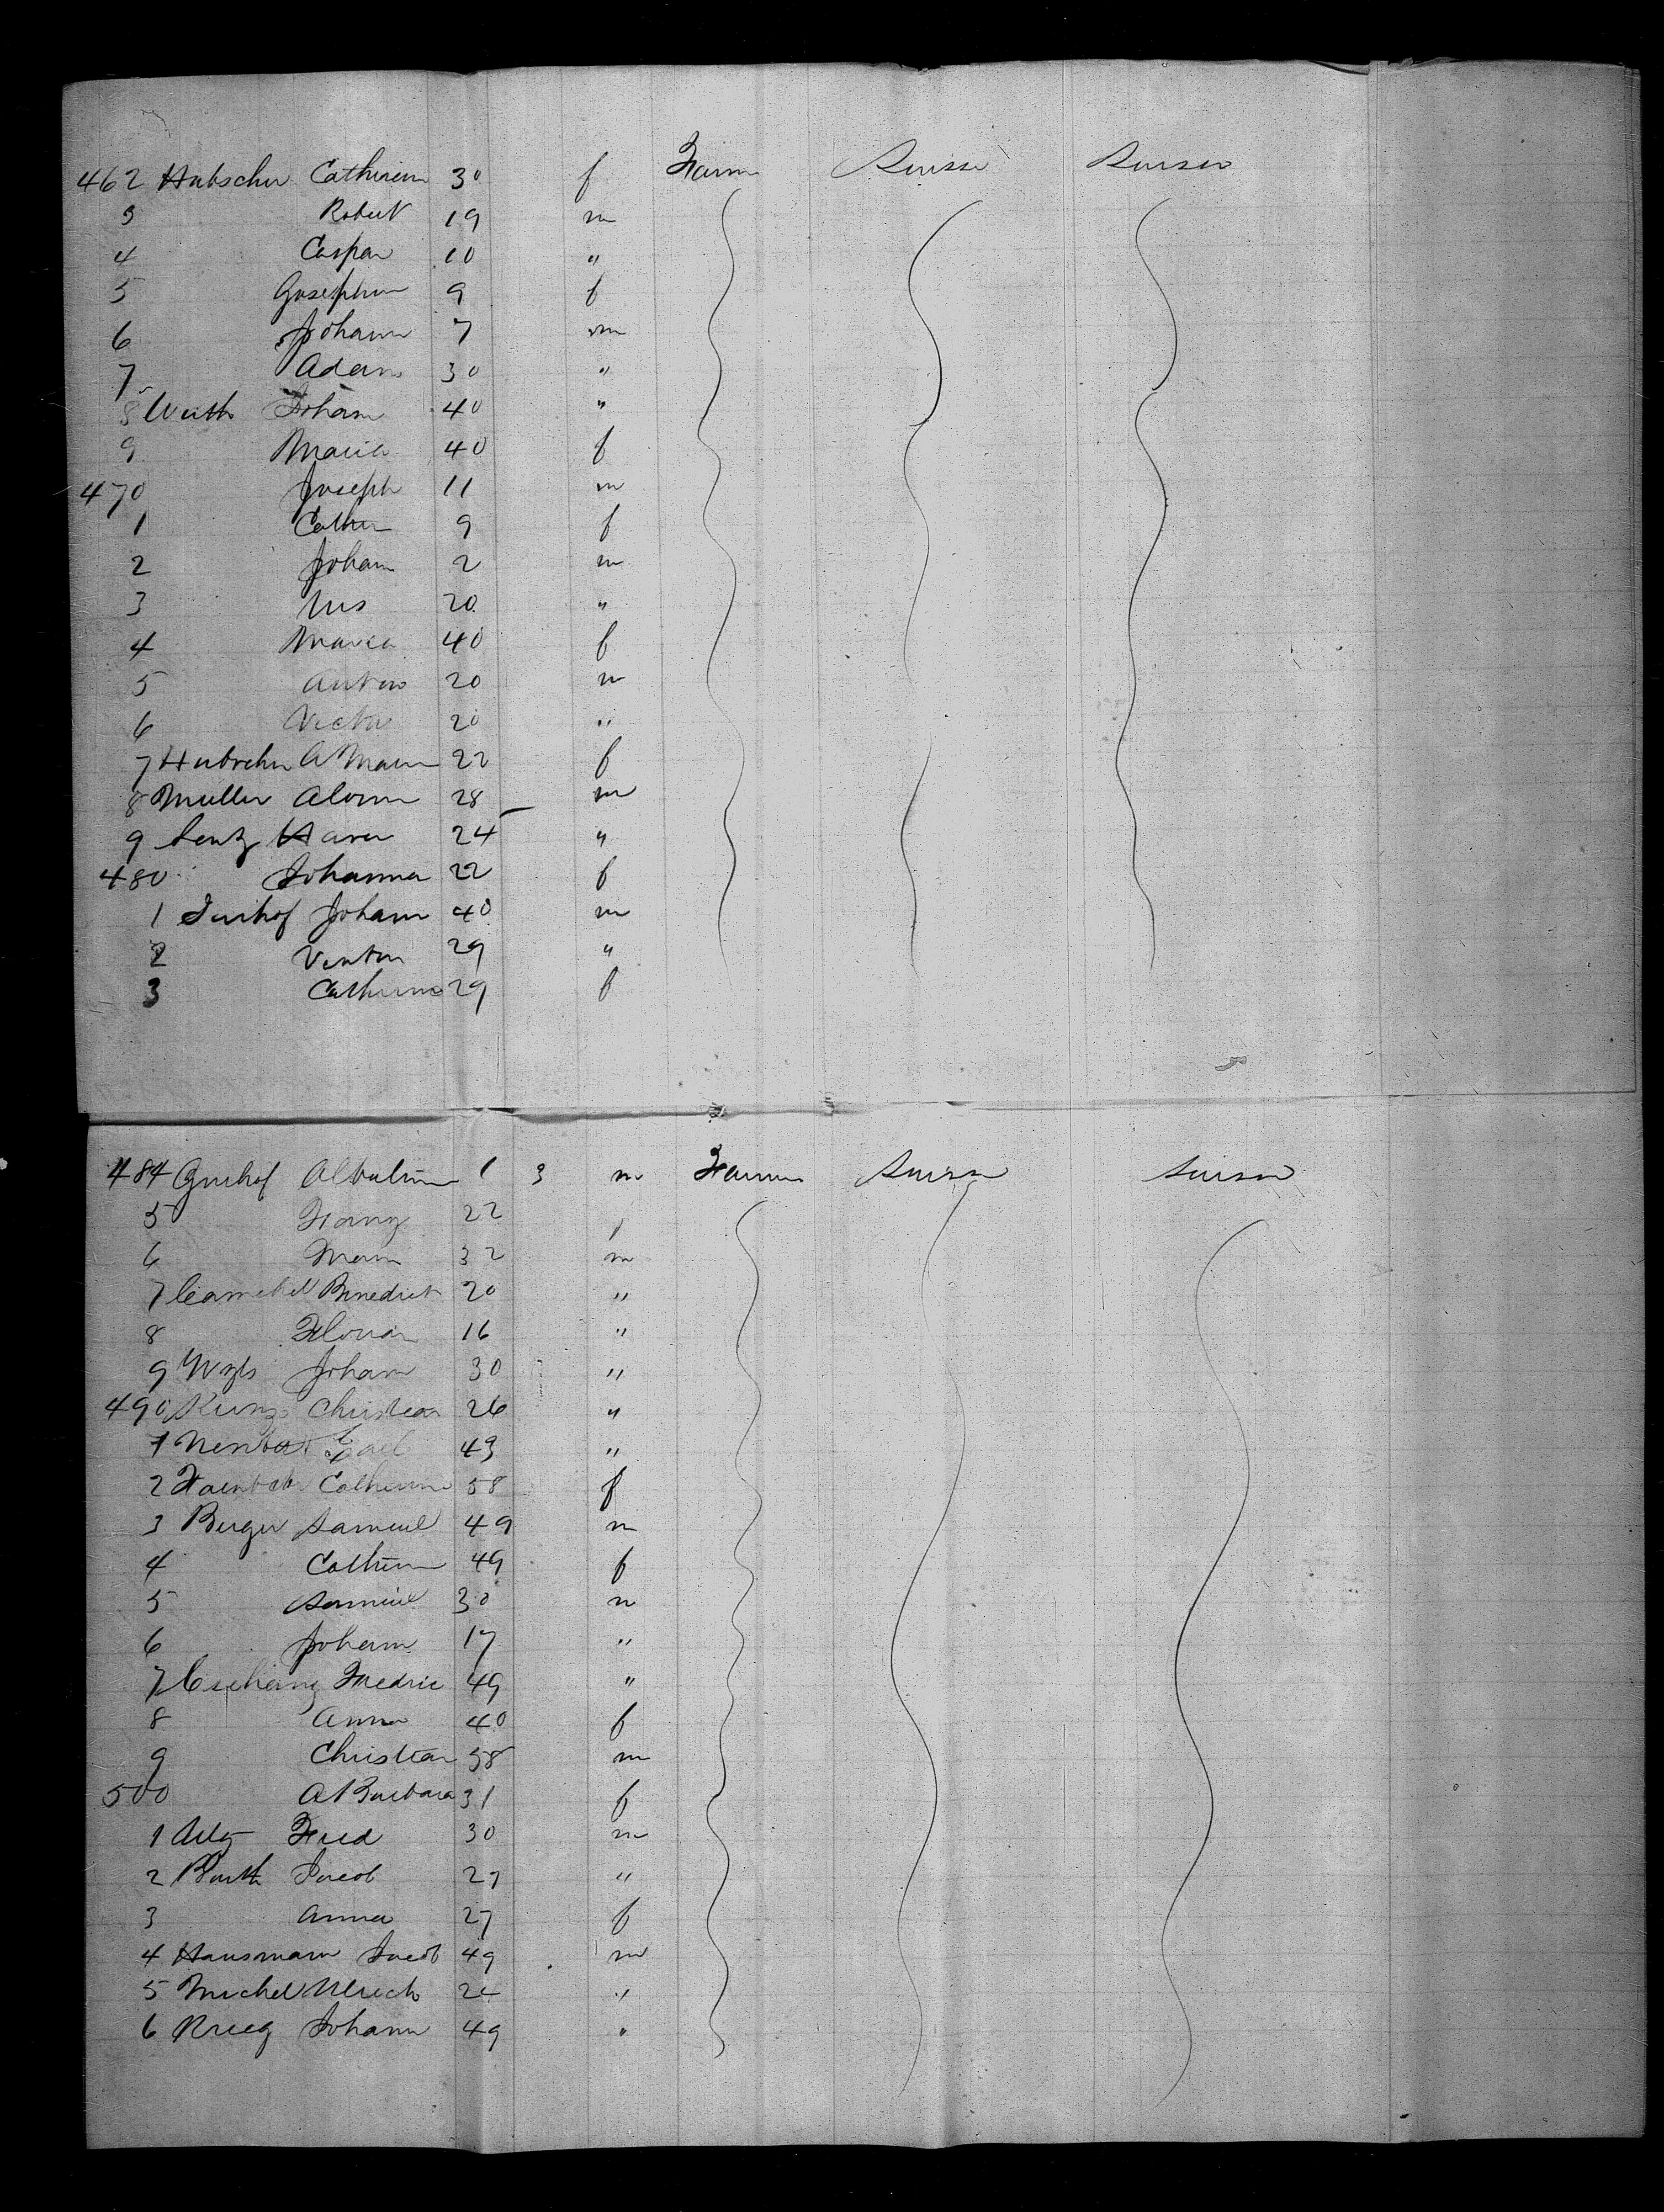 462 Hubscher Catherein 30 f Farm Suisse Suisse
3 Robert 19 m
4 Caspar 10 "
5 Josephin 9 f
6 Johann 7 m
7 Adam 30 "
8 Wirth Johann 40 "
9 Maria 40 f
470 Joseph 11 m
1 Cather 9 f
2 Johann 2 m
3 Urs 20 "
4 Maria 40 f
5 Anton 20 m
6 Victor 20 "
7 Hubscher A Maria 22 f
8 Muller Alois 28 m
9 Lentz 24 "
480 Johanna 22 f
1 Imhof Johann 40 m
2 29 "
3 Catherine 29 f
484 Imhof 1 3 m Farm Suisse Suisse
5 Franz 22 f
6 32 m
7 Benedict 20 "
8 Florian 16 "
9 Johann 30 "
490 Kunz Christian 26 "
1 43 "
2 Catherine 58 f
3 Berger Samuel 49 m
4 Catherin 49 f
5 Samuel 30 m
6 Johann 17 "
7 Fredric 49 "
8 Anna 40 f
9 Christian 38 m
500 A Barbara 31 f
1 Fred 30 m
2 Barth Jacob 27 "
3 Anna 27 f
4 Hausmann Jacob 49 m
5 Michel Ulrich 24 "
6 Krieg Johann 49 "